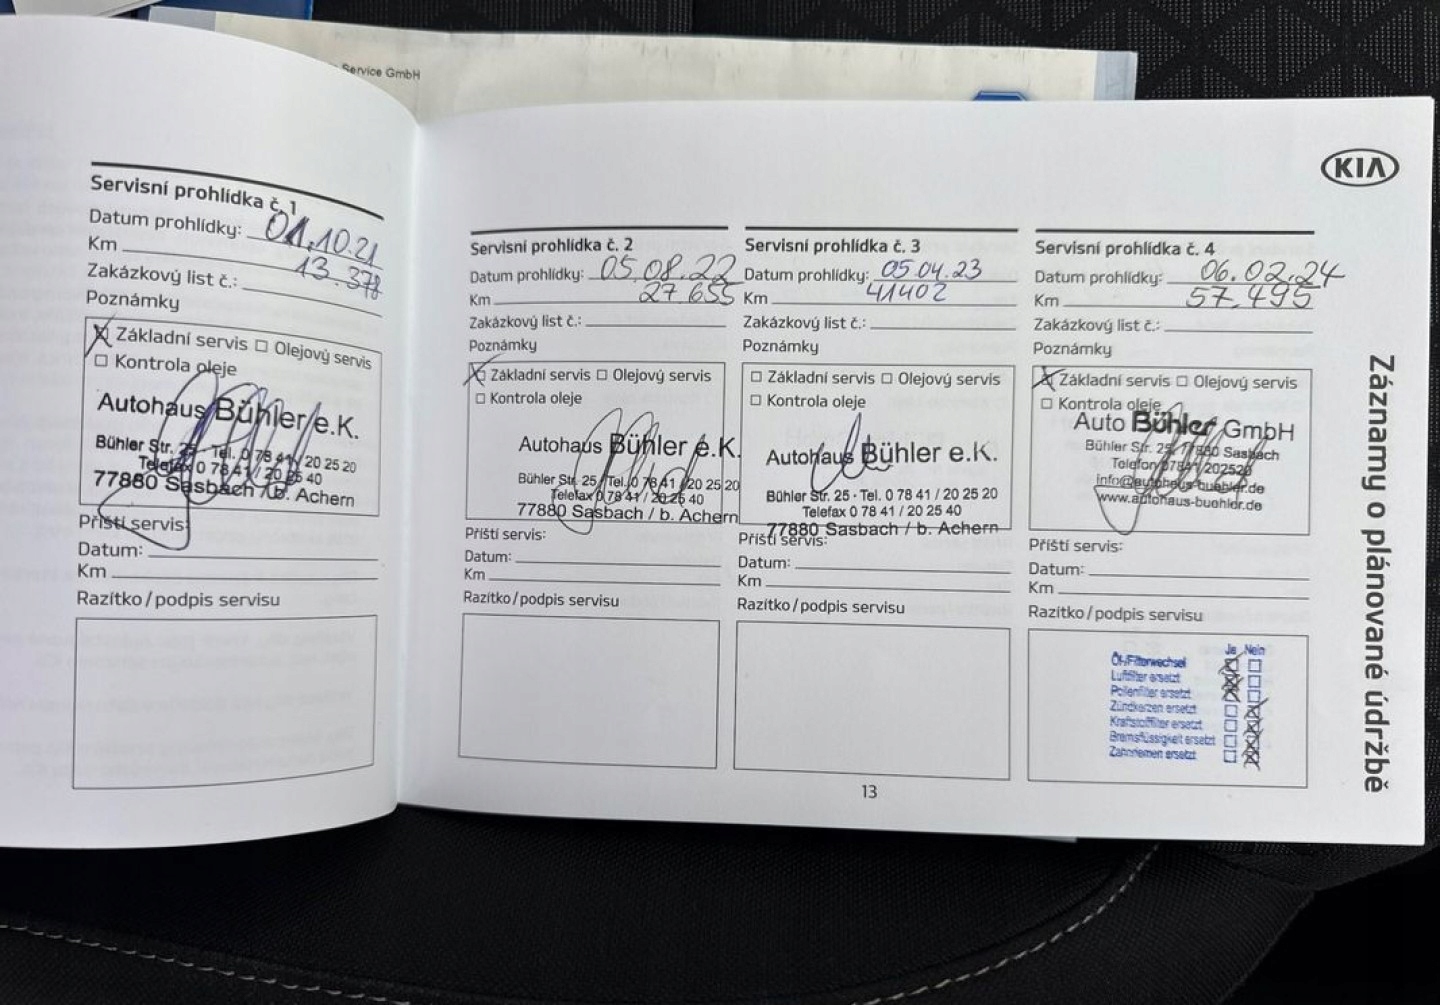 Service GmbH
KIA
Servisní prohlídka č. 1
Datum prohlídky: 01.10.21
Km 13.378
Zakázkový list č.:
Poznámky
Základní servis Olejový servis
Kontrola oleje
Autohaus Bühler e.K.
Bühler Str. 25 Tel. 0 78 41 / 20 25 20
Telefax 0 78 41 / 20 25 40
77880 Sasbach / b. Achern
Příští servis:
Datum:
Km
Razítko / podpis servisu
Servisní prohlídka č. 2
Datum prohlídky: 05.08.22
Km 27 655
Zakázkový list č.:
Poznámky
Základní servis Olejový servis
Kontrola oleje
Autohaus Bühler e.K.
Bühler Str. 25 / Tel. 0 78 41 / 20 25 20
Telefax 0 78 41 / 20 25 40
77880 Sasbach / b. Achern
Příští servis:
Datum:
Km
Razítko / podpis servisu
Servisní prohlídka č. 3
Datum prohlídky: 05.04.23
Km 41402
Zakázkový list č.:
Poznámky
Základní servis Olejový servis
Kontrola oleje
Autohaus Bühler e.K.
Bühler Str. 25 · Tel. 0 78 41 / 20 25 20
Telefax 0 78 41 / 20 25 40
77880 Sasbach / b. Achern
Příští servis:
Datum:
Km
Razítko / podpis servisu
Servisní prohlídka č. 4
Datum prohlídky: 06.02.24
Km 57.495
Zakázkový list č.:
Poznámky
Základní servis Olejový servis
Kontrola oleje
Auto Bühler GmbH
Bühler Str. 25, 77880 Sasbach
Telefon 07841 202520
info@autohaus-buehler.de
www.autohaus-buehler.de
Příští servis:
Datum:
Km
Razítko / podpis servisu
Ja Nein
Öl-/Filterwechsel
Luftfilter ersetzt
Pollenfilter ersetzt
Zündkerzen ersetzt
Kraftstofffilter ersetzt
Bremsflüssigkeit ersetzt
Zahnriemen ersetzt
13
Záznamy o plánované údržbě